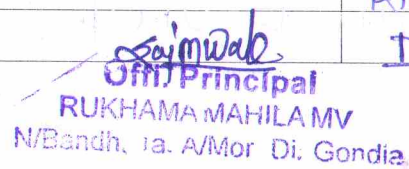 Offi. Principal
RUKHAMA MAHILA MV
N/Bandh, Ta. A/Mor Di. Gondia